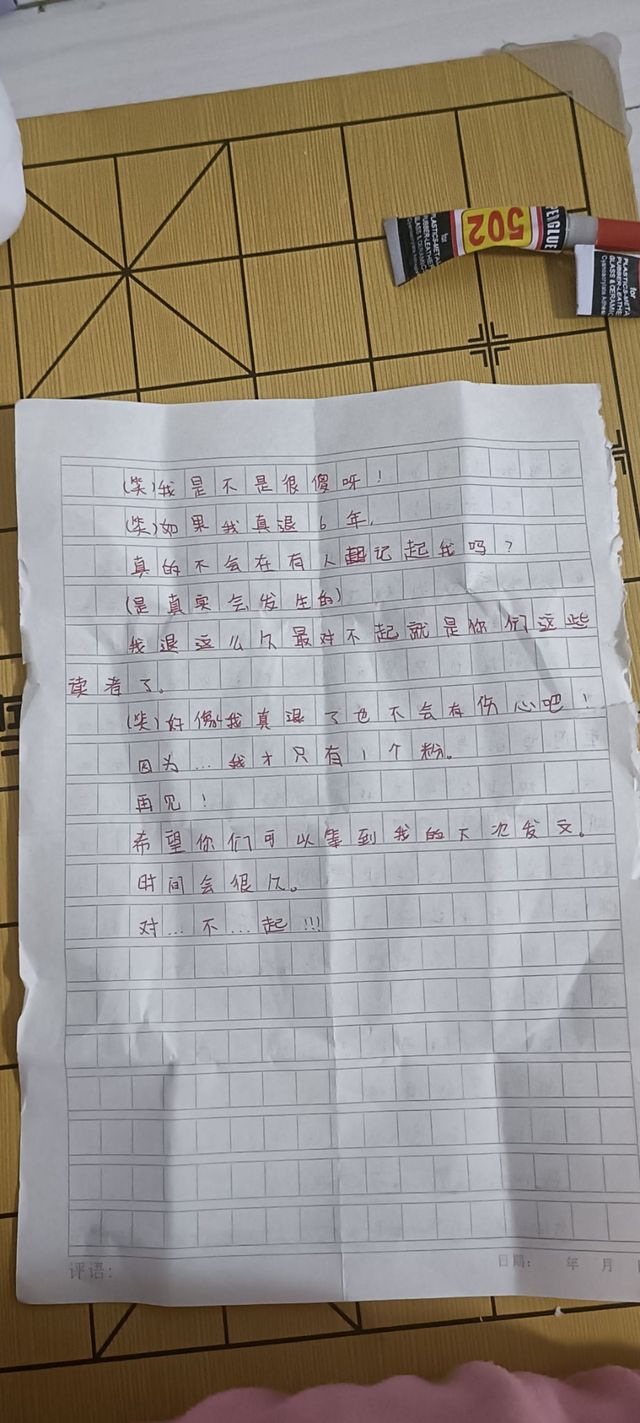 502
PLASTICS-META
RUBBER-LEATHE
GLASS & CERAMIC
for
PLASTICS-META
RUBBER-LEATHE
GLASS & CERAMIC
(笑)我是不是很傻呀！
(笑)如果我真退6年，
真的不会在有人记起我吗？
(是真实会发生的)
我退这么久最对不起就是你们这些
读者了。
(笑)好像我真退了也不会有伤心吧！
因为…我才只有1个粉。
再见！
希望你们可以等到我的下次发文。
时间会很久。
对…不…起!!!
评语：
日期： 年 月